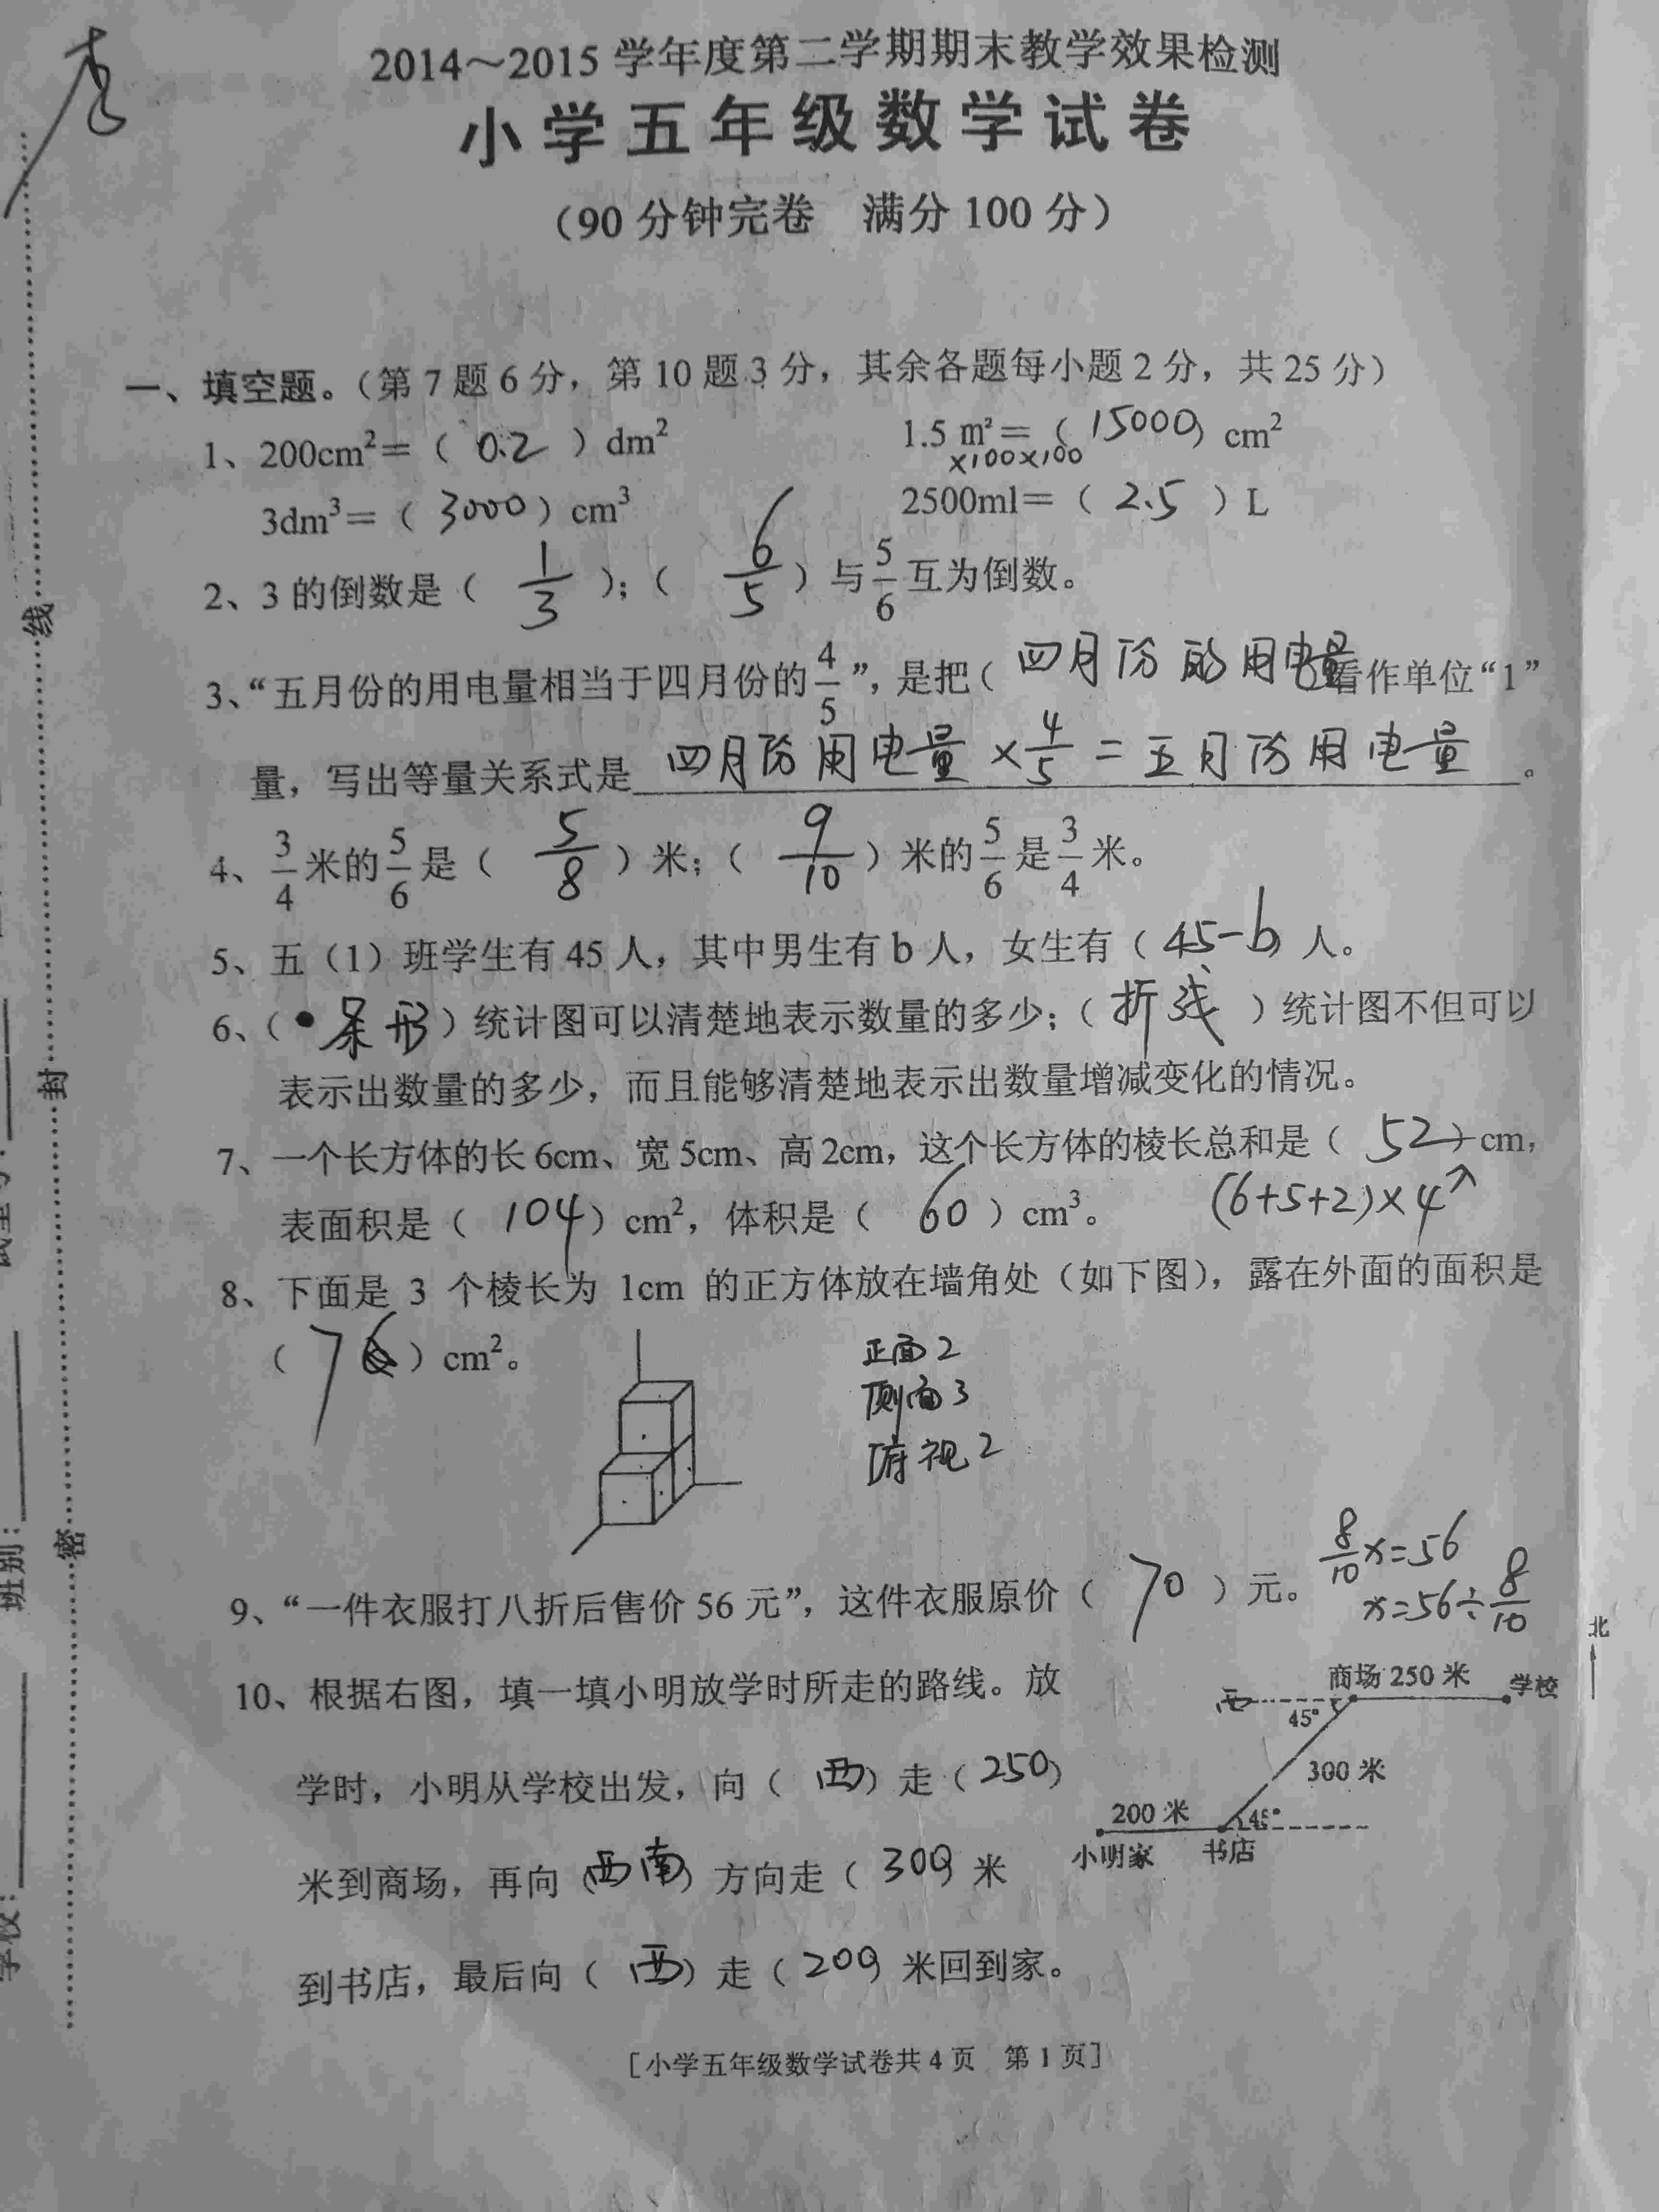 2014～2015 学年度第二学期期末教学效果检测
小学五年级数学试卷
（90 分钟完卷　满分 100 分）
一、填空题。（第 7 题 6 分，第 10 题 3 分，其余各题每小题 2 分，共 25 分）
1、200cm²＝（ 0.2 ）dm²　1.5 m²＝（ 15000 ）cm²
×100×100
3dm³＝（ 3000 ）cm³　2500ml＝（ 2.5 ）L
2、3 的倒数是（ 1/3 ）；（ 6/5 ）与 5/6 互为倒数。
3、“五月份的用电量相当于四月份的 4/5 ”，是把（ 四月份的用电量 看作单位“1”
量，写出等量关系式是 四月份用电量 × 4/5 = 五月份用电量 。
4、3/4 米的 5/6 是（ 5/8 ）米；（ 9/10 ）米的 5/6 是 3/4 米。
5、五（1）班学生有 45 人，其中男生有 b 人，女生有（ 45-b ）人。
6、（ 条形 ）统计图可以清楚地表示数量的多少；（ 折线 ）统计图不但可以
表示出数量的多少，而且能够清楚地表示出数量增减变化的情况。
7、一个长方体的长 6cm、宽 5cm、高 2cm，这个长方体的棱长总和是（ 52 ）cm，
(6+5+2)×4
表面积是（ 104 ）cm²，体积是（ 60 ）cm³。
8、下面是 3 个棱长为 1cm 的正方体放在墙角处（如下图），露在外面的面积是
（ 7 ）cm²。
正面2
侧面3
俯视2
9、“一件衣服打八折后售价 56 元”，这件衣服原价（ 70 ）元。
8/10 x=56
x=56÷8/10
10、根据右图，填一填小明放学时所走的路线。放
学时，小明从学校出发，向（ 西 ）走（ 250 ）
米到商场，再向（ 西南 ）方向走（ 300 ）米
到书店，最后向（ 西 ）走（ 200 ）米回到家。
北
西
商场 250 米 学校
45°
300 米
200 米
45°
小明家 书店
［小学五年级数学试卷共 4 页　第 1 页］
线
封
密
班别：
学校：